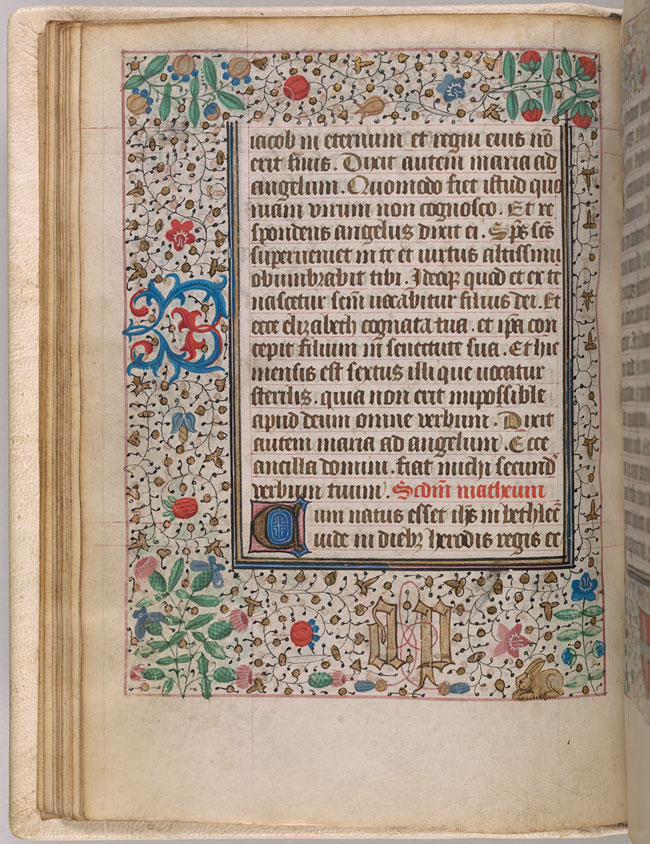 iacob in eternum et regni eius nō
erit finis. Dixit autem maria ad
angelum. Quomodo fiet istud quo
niam virum non cognosco. Et re
spondens angelus dixit ei. Sp̄s sc̄s
superueniet in te et virtus altissimi
obumbrabit tibi. Ideoqꝫ quod et ex te
nascetur sc̄m uocabitur filius dei. Et
ecce elizabeth cognata tua. et ip̄a con
cepit filium in senectute sua. Et hic
mensis est sextus illi que uocatur
sterilis. quia non erit impossibile
apud deum omne verbum. Dixit
autem maria ad angelum. Ecce
ancilla domini. fiat michi secund̄
verbum tuum. Scdm̄ matheum
Cum natus esset ih̄s in bethleē
iude in diebꝫ herodis regis et